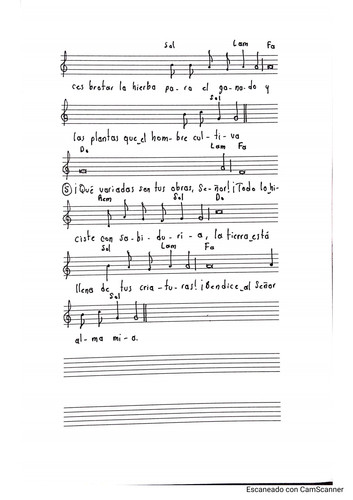 Sol Lam Fa
ces brotar la hierba pa-ra el ga-na-do y
Sol
las plantas que el hom-bre cul-ti-va
Do Lam Fa
Ⓢ ¡Qué variadas son tus obras, Se-ñor! ¡Todo lo hi-
Rem Sol Do
ciste con sa-bi-du-ri-a, la tierra está
Sol Lam Fa
llena de tus cria-tu-ras! ¡Bendice al Señor
Sol
al-ma mi-a.
Escaneado con CamScanner